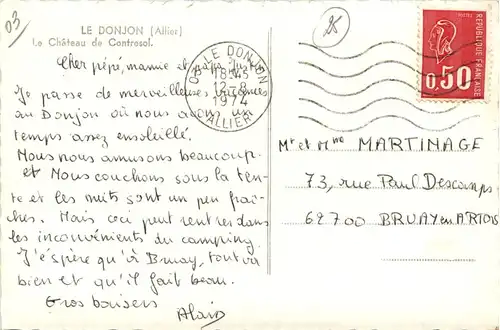 03
LE DONJON (Allier)
Le Château de Contresol.
25
LE DONJON
18H45
12-8
1974
ALLIER
REPUBLIQUE FRANÇAISE
POSTES
0,50
Cher pépé, mamie et
Je passe de merveilleuses vacances
au Donjon où nous avons un
temps assez ensoleillé.
Nous nous amusons beaucoup.
et Nous couchons sous la ten-
te et les nuits sont un peu fraî-
ches. Mais ceci peut rentrer dans
les inconvénients du camping.
J'éspère qu'à Bruay, tout va
bien et qu'il fait beau.
Gros baisers
Alain
Mr et Mme MARTINAGE
73, rue Paul Descamps
62700 BRUAY en ARTOIS